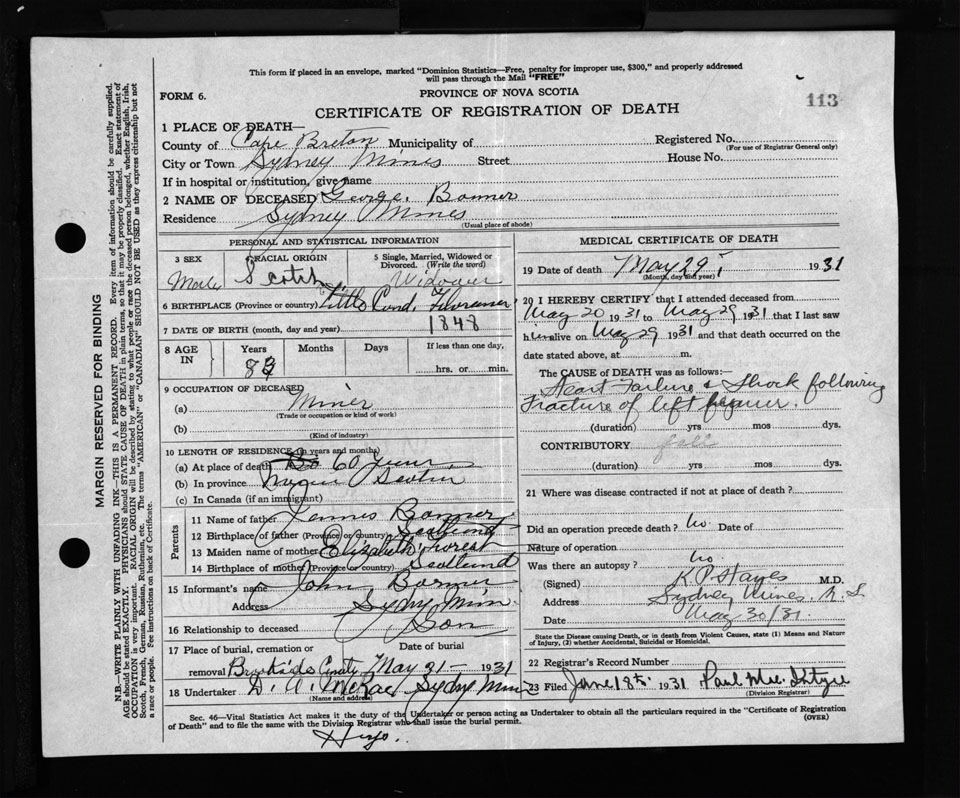 This form if placed in an envelope, marked "Dominion Statistics—Free, penalty for improper use, $300," and properly addressed
will pass through the Mail "FREE"
FORM 6.
PROVINCE OF NOVA SCOTIA
113
CERTIFICATE OF REGISTRATION OF DEATH
1 PLACE OF DEATH—
County of Cape Breton Municipality of Registered No.
(For use of Registrar General only)
City or Town Sydney Mines Street House No.
If in hospital or institution, give name
2 NAME OF DECEASED George Bonner
Residence Sydney Mines
(Usual place of abode)
PERSONAL AND STATISTICAL INFORMATION
3 SEX
Male
4 RACIAL ORIGIN
Scotch
5 Single, Married, Widowed or
Divorced. (Write the word)
Widower
6 BIRTHPLACE (Province or country) Little
7 DATE OF BIRTH (month, day and year) 1848
8 AGE
IN
Years Months Days If less than one day,
83 hrs. or min.
9 OCCUPATION OF DECEASED
(a) Miner
(Trade or occupation or kind of work)
(b)
(Kind of industry)
10 LENGTH OF RESIDENCE (in years and months)
(a) At place of death 60 years
(b) In province Scotia
(c) In Canada (if an immigrant)
Parents
11 Name of father James Bonner
12 Birthplace of father (Province or country) Scotland
13 Maiden name of mother Elizabeth
14 Birthplace of mother (Province or country) Scotland
15 Informant's name John Bonner
Address Sydney Mines
16 Relationship to deceased Son
17 Place of burial, cremation or Date of burial
removal Brookside May 31 1931
18 Undertaker D. A. McRae Sydney Mines
(Name and address)
MEDICAL CERTIFICATE OF DEATH
19 Date of death May 29, 1931
(Month, day and year)
20 I HEREBY CERTIFY that I attended deceased from
May 20 1931 to May 29 1931 that I last saw
him alive on May 29 1931 and that death occurred on the
date stated above, at m.
The CAUSE of DEATH was as follows:—
Heart Failure & Shock following
Fracture of left femur.
(duration) yrs mos dys.
CONTRIBUTORY fall
(duration) yrs mos dys.
21 Where was disease contracted if not at place of death?
Did an operation precede death? No. Date of
Nature of operation
Was there an autopsy? No.
(Signed) K P Hayes M.D.
Address Sydney Mines, N.S.
Date May 30/31
State the Disease causing Death, or in death from Violent Causes, state (1) Means and Nature
of Injury, (2) whether Accidental, Suicidal or Homicidal.
22 Registrar's Record Number
23 Filed June 18th 1931 Paul
(Division Registrar)
Sec. 46—Vital Statistics Act makes it the duty of the Undertaker or person acting as Undertaker to obtain all the particulars required in the "Certificate of Registration
of Death" and to file the same with the Division Registrar who shall issue the burial permit. (OVER)
MARGIN RESERVED FOR BINDING
N.B.—WRITE PLAINLY WITH UNFADING INK—THIS IS A PERMANENT RECORD. Every item of information should be carefully supplied.
AGE should be stated EXACTLY. PHYSICIANS should STATE CAUSE OF DEATH in plain terms, so that it may be properly classified. Exact statement of
OCCUPATION is very important. RACIAL ORIGIN will be described by stating to what people or race the deceased person belonged, whether English, Irish,
Scotch, French, German, Russian, Ruthenian, etc. The terms "AMERICAN" or "CANADIAN" SHOULD NOT BE USED as they express citizenship but not
a race or people. Fee instructions on back of Certificate.